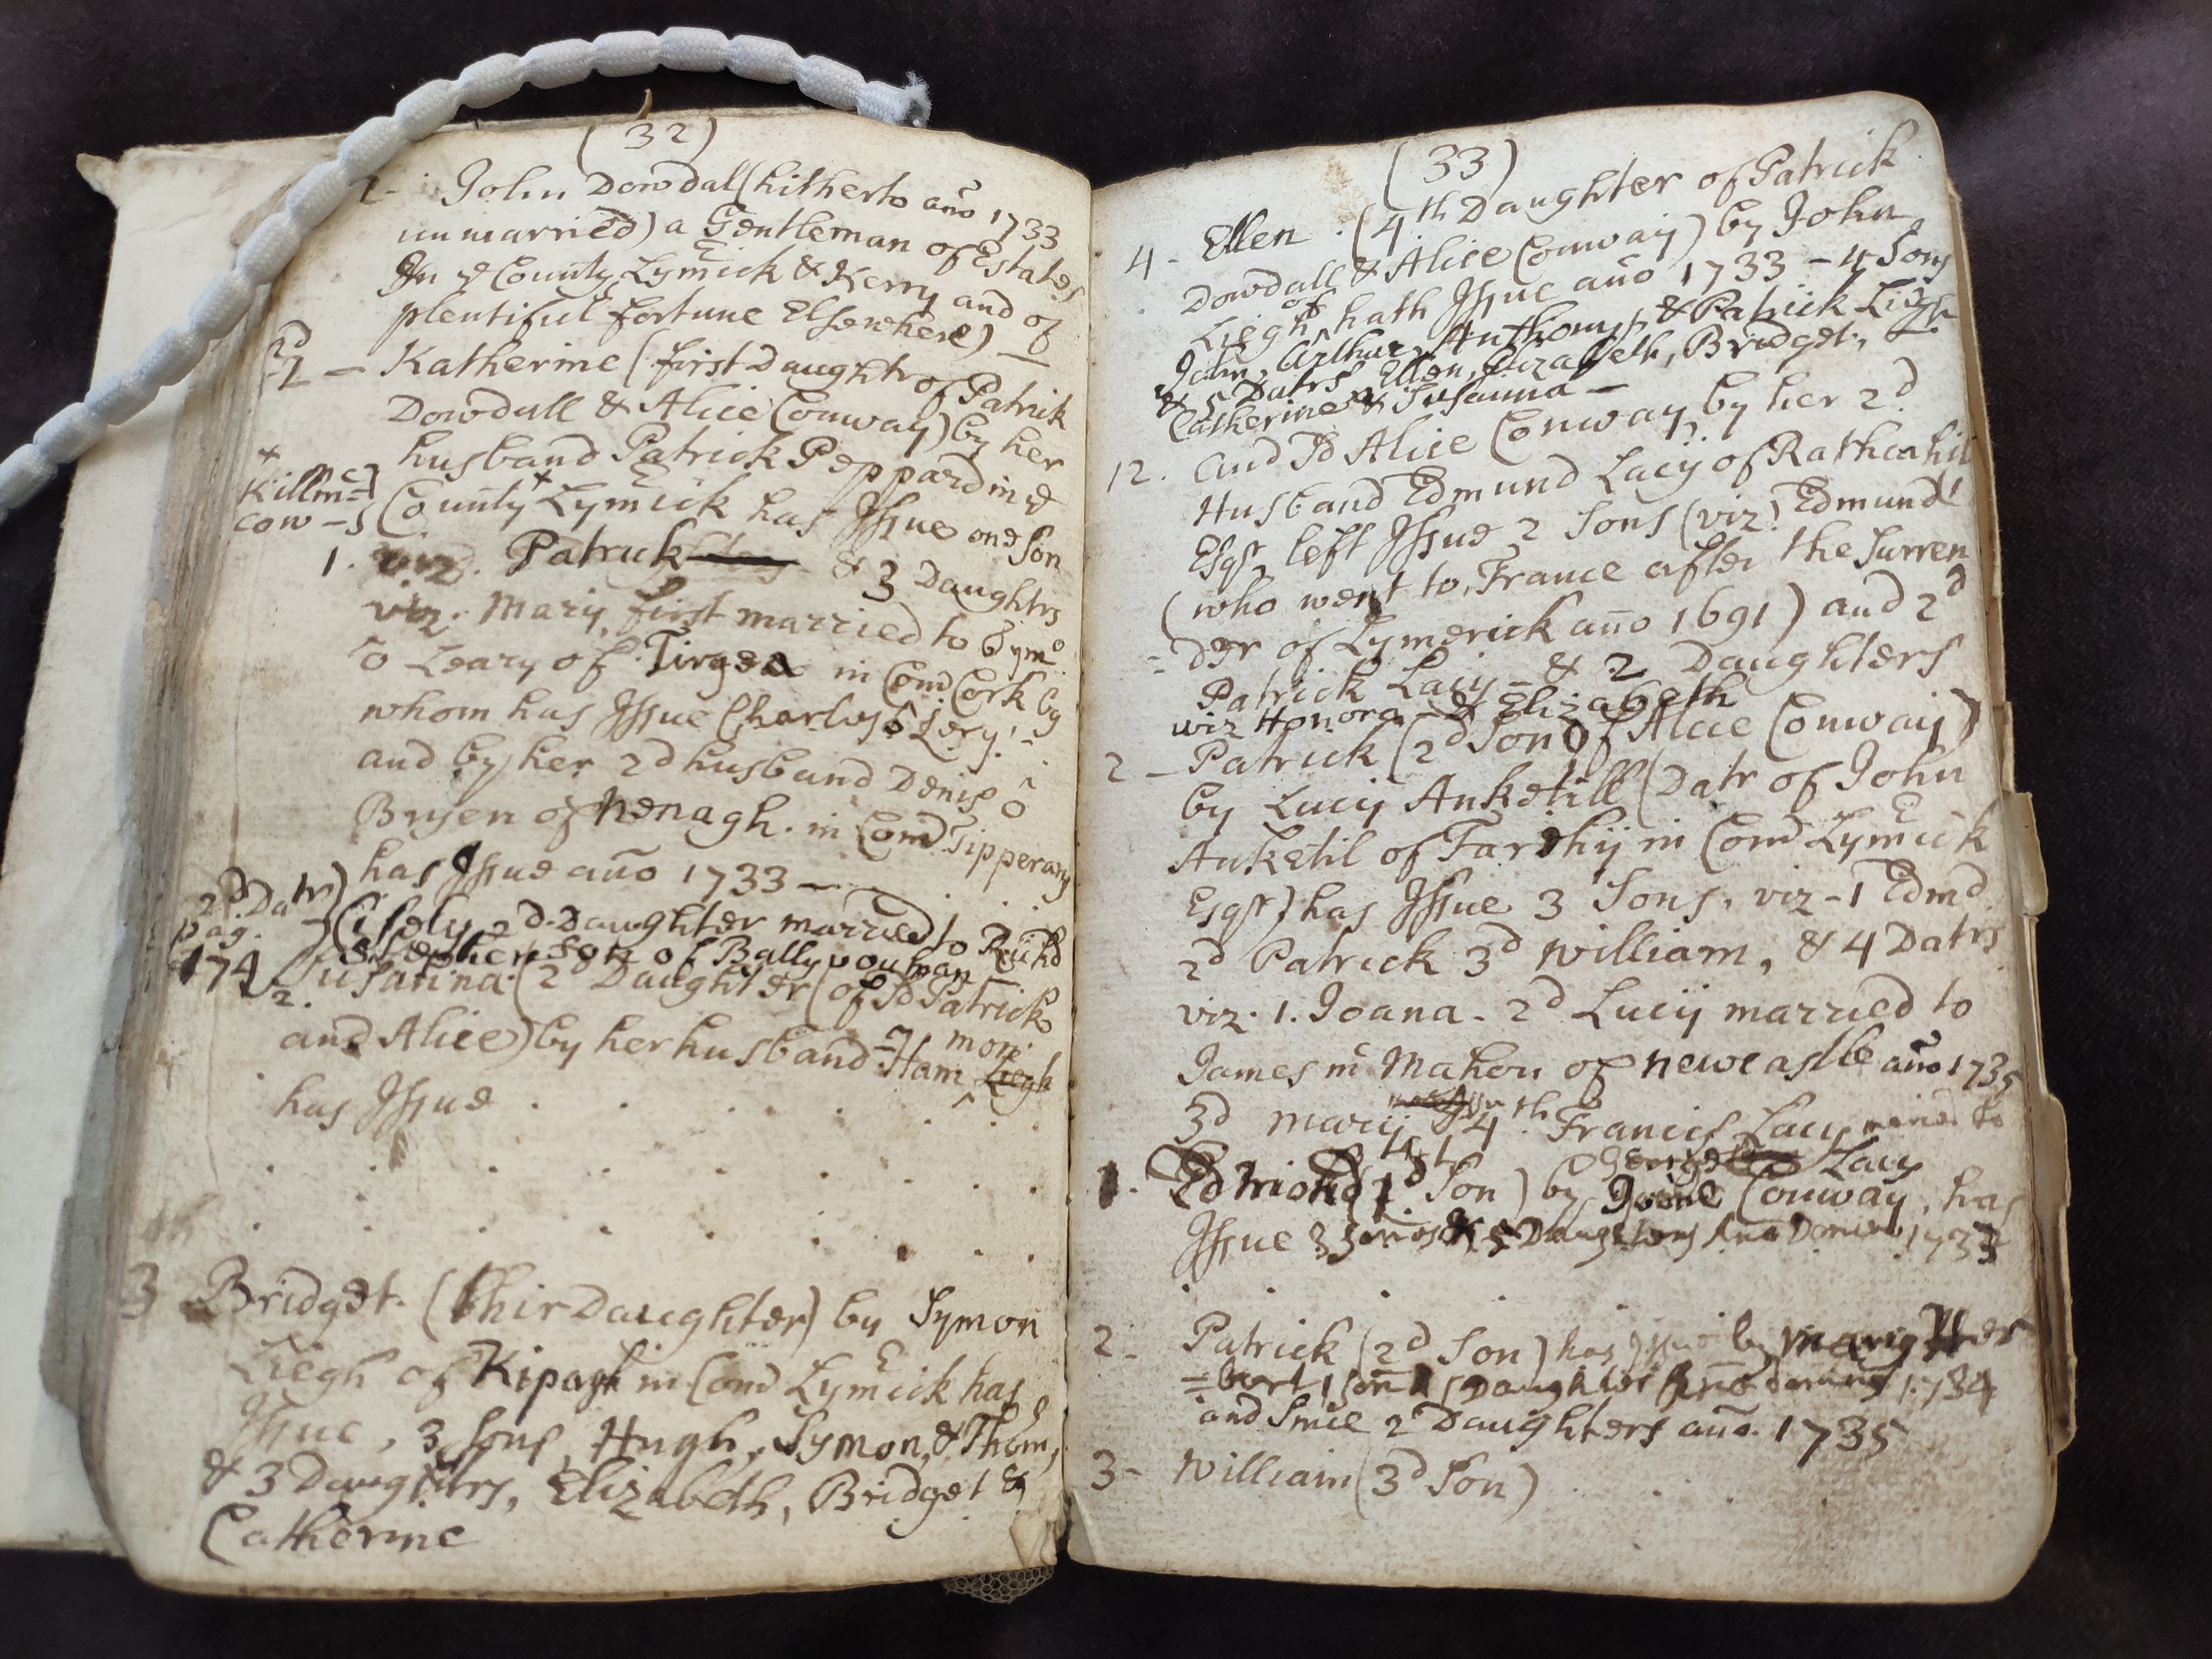 (32)
2- John Dowdal (hitherto año 1733
unmarried) a Gentleman of Estates
In ye County Lymrick & Kerry and of
plentiful fortune Elsewhere) —
1 — Katherine (first Daughtr of Patrick
Dowdall & Alice Conway) by her
husband Patrick Peppard in ye
+ Killma=
cow - County + Lymrick has Issue one Son
1. viz. Patrick & 3 Daughtrs
viz. Mary, first married to
ô Leary of Tirgea in Com Cork by
whom has Issue Charles ô Lery!
and by her 2d husband Denis ô
Bryen of Nenagh. in Comd Tipperary
has Issue año 1733 —
2d. Datr)
pag.
174
Cisely 2d. Daughter married to Richd
Stephenson of Bally
2. Susanna (2d Daughter (of sd Patrick
and Alice) by her husband Ham
mon
Liegh
has Issue
3 Bridget. (thir Daughter) by Symon
Liegh of Kipagh in Comd Lymrick has
Issue, 3 Sons, Hugh, Symon, & Thom,
& 3 Daughtrs, Elizabeth, Bridget &
Catherine
(33)
4 - Ellen. (4th Daughter of Patrick
Dowdall & Alice Conway) by John
Liegh of hath Issue año 1733 - 4 Sons
John, Arthur, Anthony, & Patrick Liegh
& 5 Datrs Ellen, Elizabeth, Bridget,
Catherine & Susanna —
12. and sd Alice Conway by her 2d
Husband Edmund Lacy of Rathcahil
Esqr, left Issue 2 Sons (viz) Edmund
(who went to France after the Surren
= der of Lymerick año 1691) and 2d
Patrick Lacy - & 2 Daughters
viz Honora & Elizabeth
2 - Patrick (2d Son of Alice Conway)
by Lucy Anketill (Datr of John
Anketil of Farihy in Comd Lymrick
Esqr) has Issue 3 Sons, viz - 1 Edmd
2d Patrick 3d William, & 4 Datrs
viz. 1. Joana - 2d Lucy married to
James mc Mahon of Newcastle año 1735
3d Mary 4th Francis Lacy maried to
George Lacy
1. Edmond (1st Son) by Joane Conway, has
Issue 3 Sones & 5 Daughters Ano Domini 1733
2 - Patrick (2d Son) has Issue by Mary Her
= bert 1 Son & Daughter Ano domini 1734
and Since 2 Daughters año 1735
3 - William (3d Son)